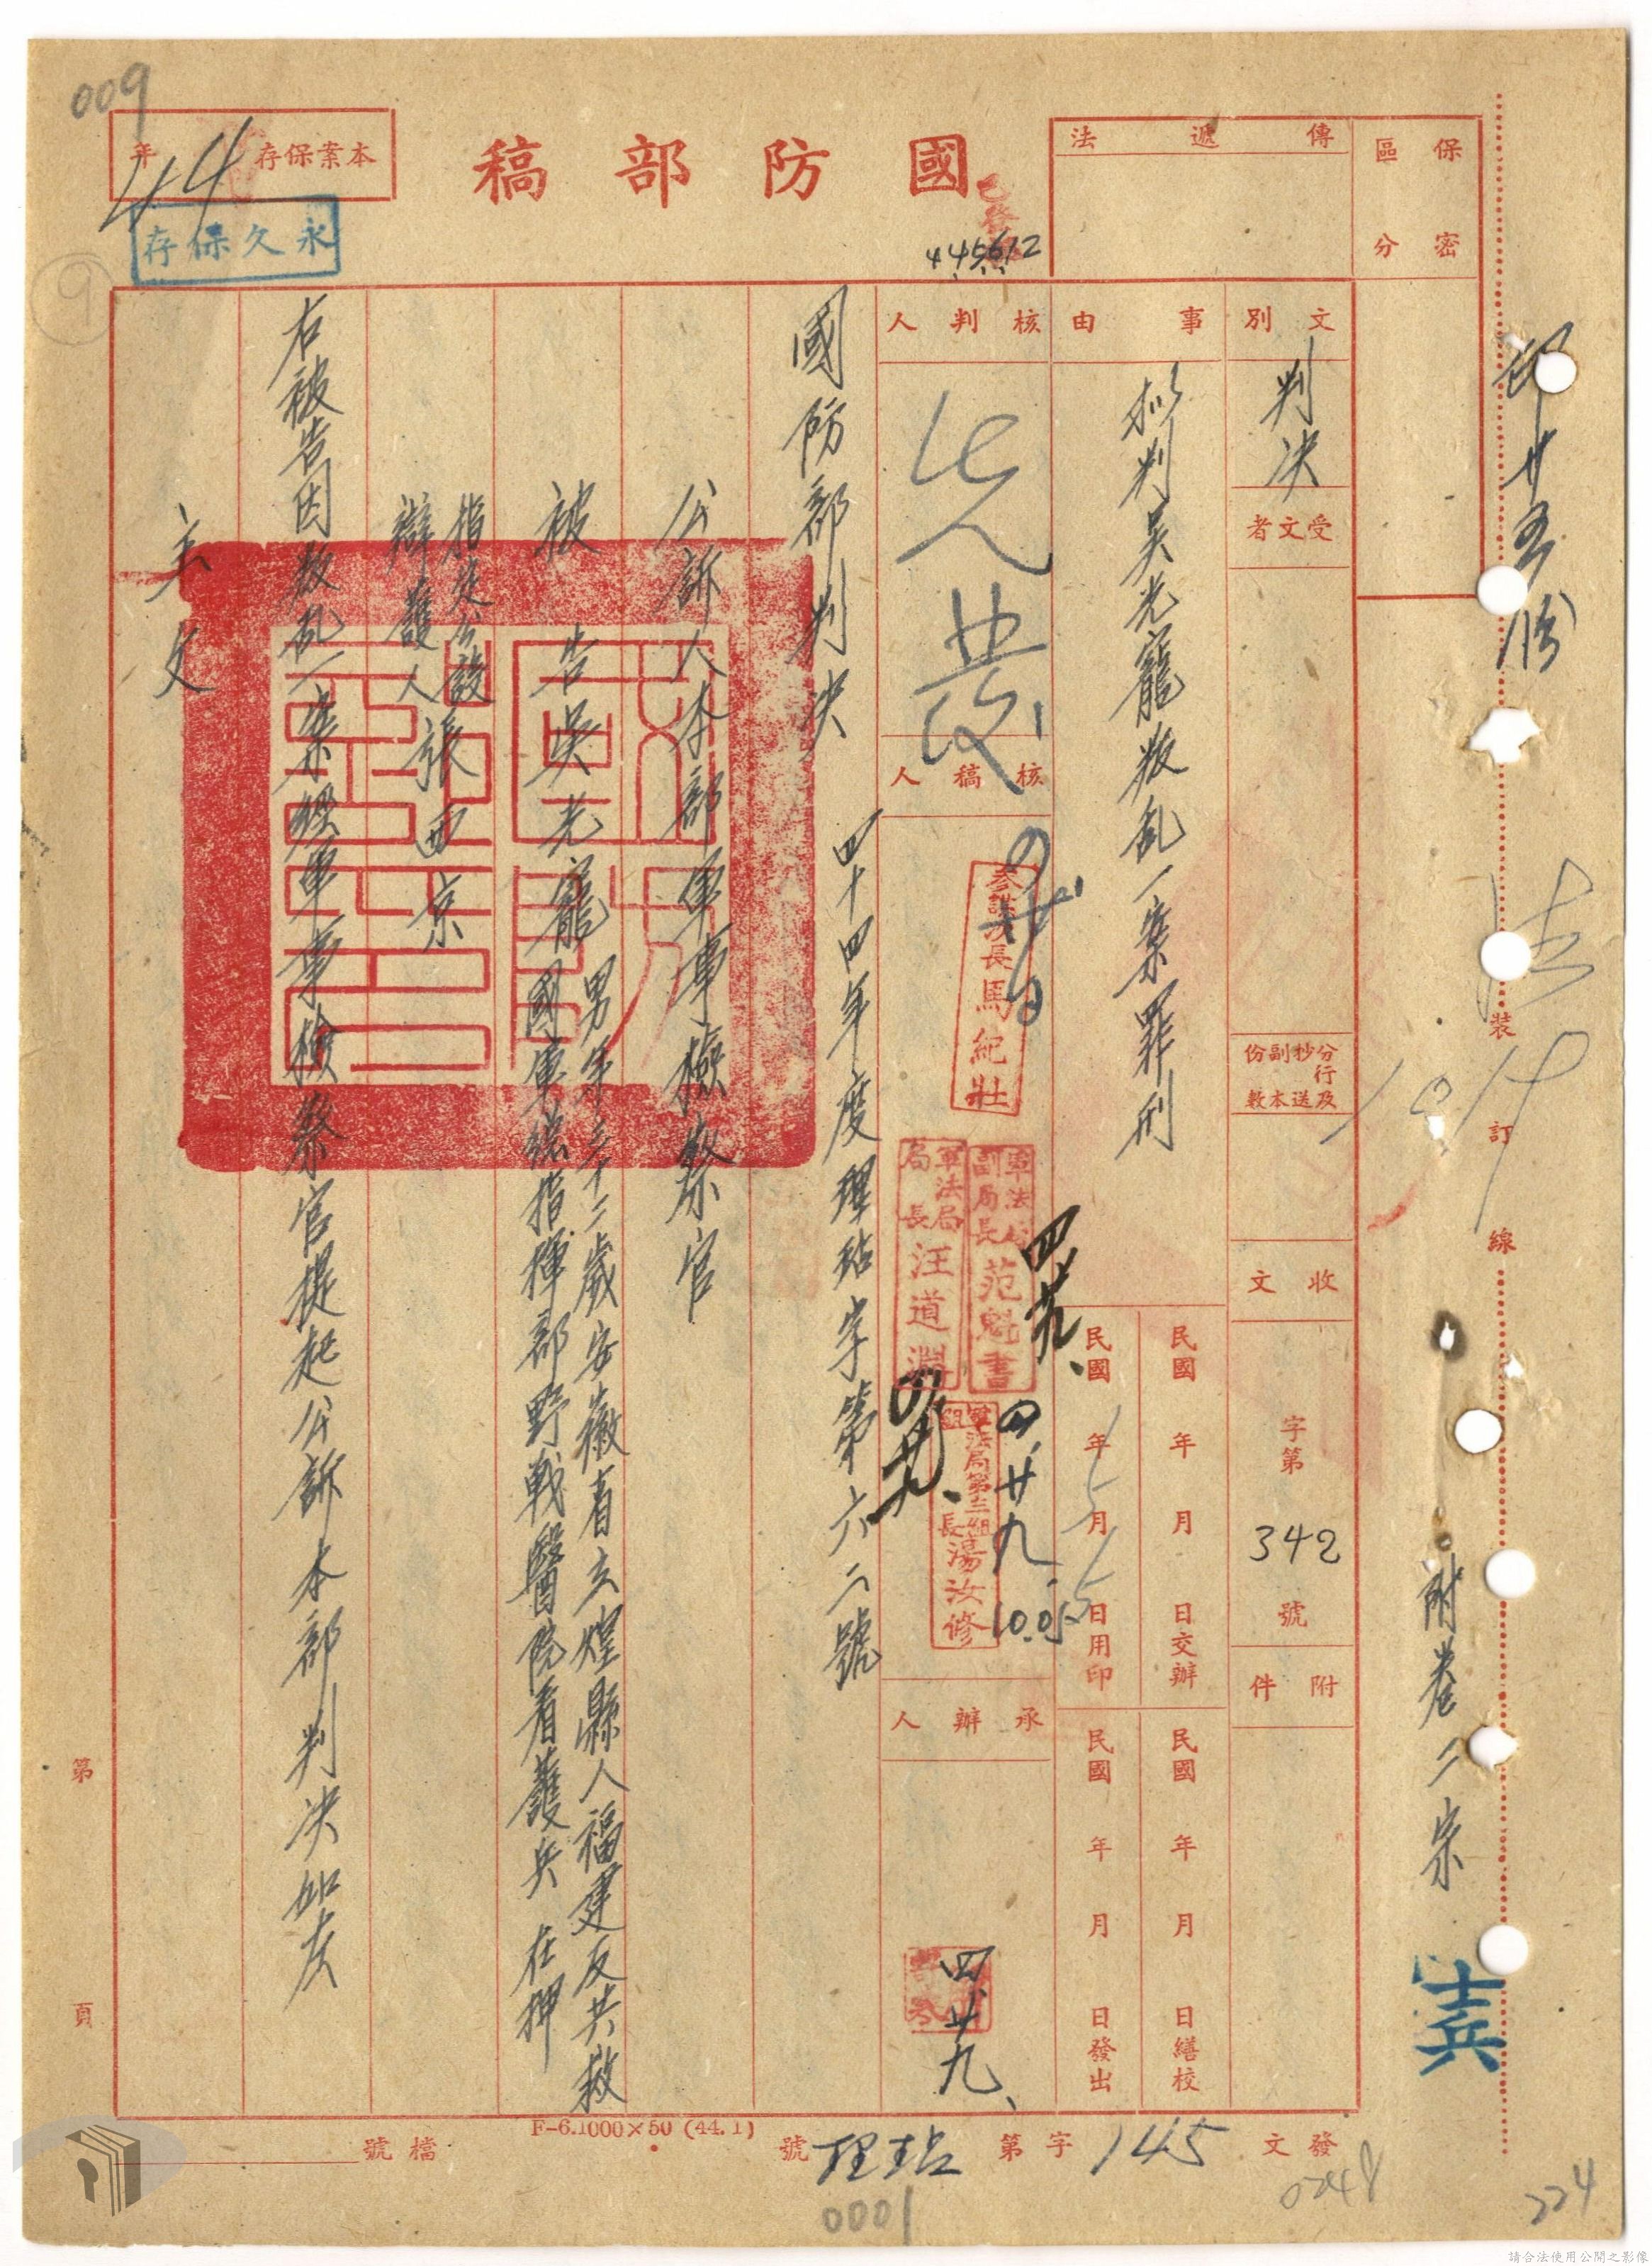 009
本案保存
年
44
永久保存
9
國防部稿
445612
傳遞法
保密
區分
文別
判決
受文者
分行及
抄送
副本
份數
收文
字第
342
號
附件
事由
擬判吳光寵叛乱一案罪刑
民國 年 月 日交辦
民國 年 月 日繕校
民國 年 月 日用印
民國 年 月 日發出
核判人
核稿人
參謀次長馬紀壯
軍法局
副局長
范魁書
四.廿九、
軍法局
局長
汪道淵
軍法局第三組
組長
湯汝修
四、廿九
承辦人
四廿九、
國防部判決
四十四年度理玷字第六二號
公訴人本部軍事檢察官
被告吳光寵
男年三十二歲安徽省立煌縣人福建反共救
國軍總指揮部野戰醫院看護兵 在押
指定公設
辯護人
張西京
右被告因叛乱一案經軍事檢察官提起公訴本部判決如左
主文
印廿五份
裝
訂
線
附卷二宗
士兵
第 頁
發文
145
字第
理玷
號
檔號
F-6.1000×50 (44.1)
0001
0248
224
請合法使用公開之影像